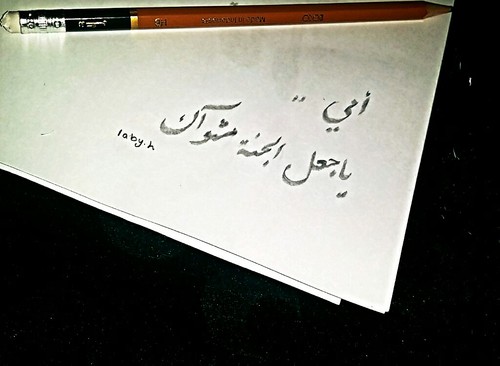 أمي ..
ياجعل الجنة مثوآك
laby.h